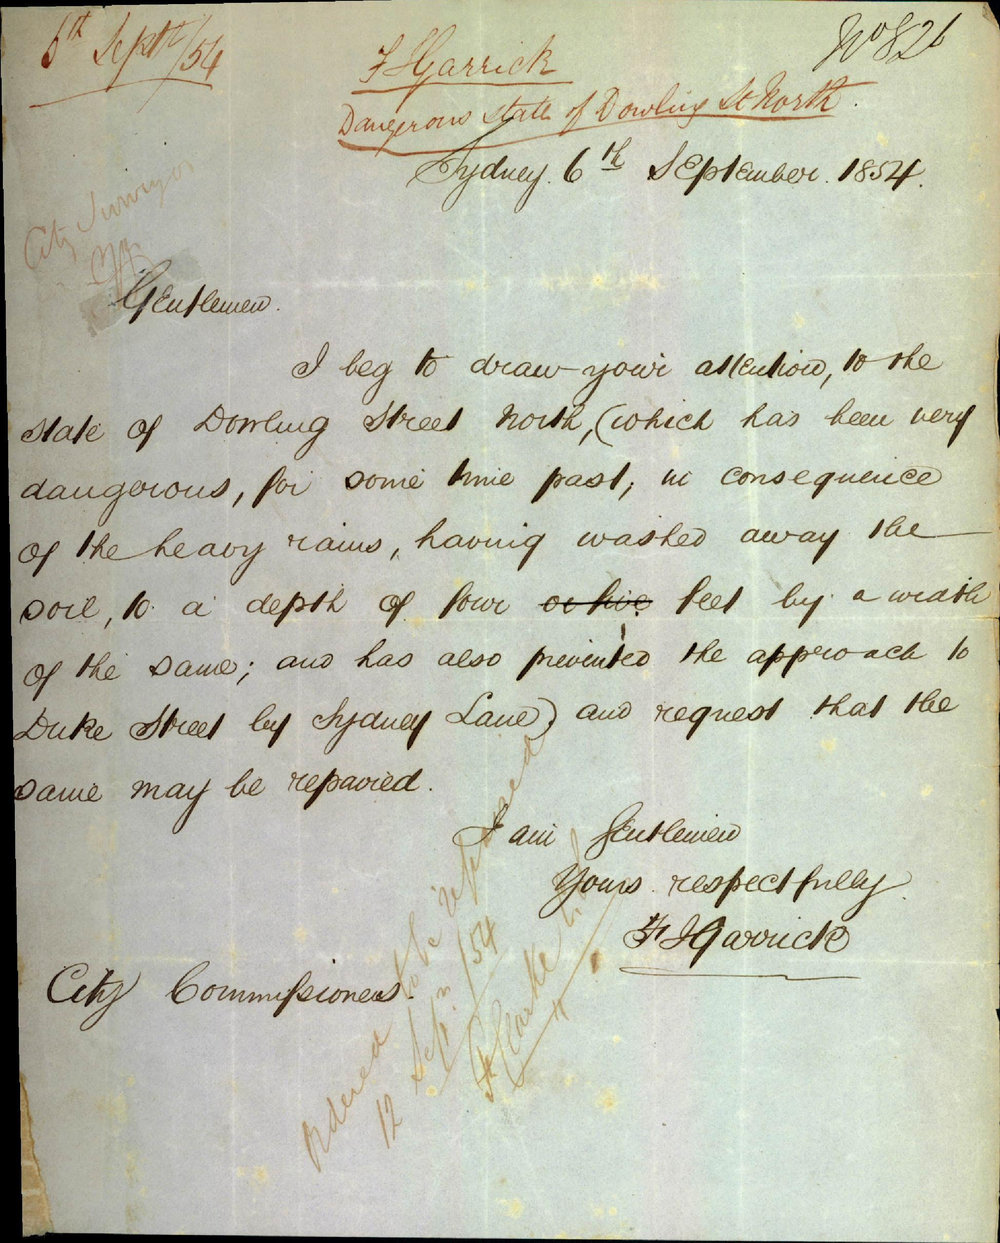 6th Septr/54
No 826
F J Garrick
Dangerous state of Dowling St North.
Sydney. 6th September. 1854.
City Surveyor
Gentlemen.
I beg to draw your attention, to the
state of Dowling Street North, (which has been very
dangerous, for some time past, in consequence
of the heavy rains, having washed away the
soil, to a depth of four or five feet by a width
of the same; and has also prevented the approach to
Duke Street by Sydney Lane) and request that the
same may be repaired.
I am Gentlemen
Yours respectfully
F J Garrick
City Commissioners.
Ordered to be repaired
12 Sepr. /54
Clarke